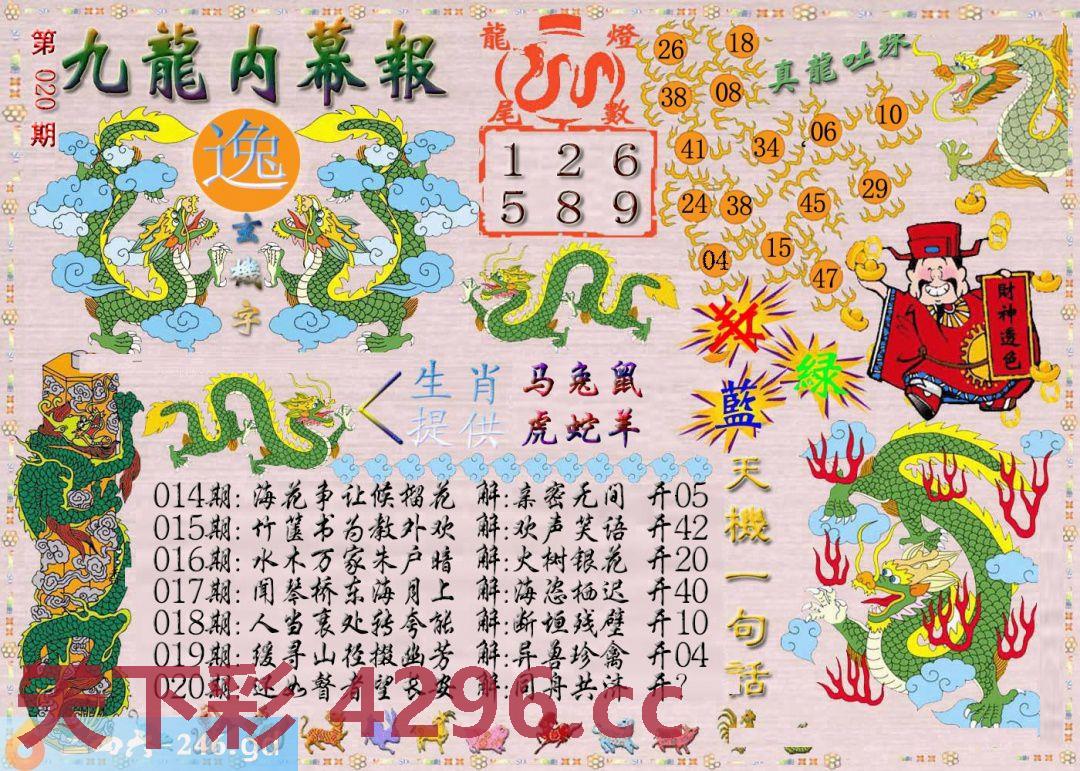 第020期
九龍内幕報
逸
玄機字
龍尾燈數
1 2 6
5 8 9
真龍吐珠
26 18
38 08
41 34 06 10
24 38 45 29
04 15 47
財神透色
红
綠
藍
生肖提供
马兔鼠
虎蛇羊
天機一句話
014期: 海花争让候榴花 解:亲密无间 开05
015期: 竹箧书为教外欢 解:欢声笑语 开42
016期: 水木万家朱户暗 解:火树银花 开20
017期: 闻琴桥东海月上 解:海盗栖迟 开40
018期: 人当衰处转夸能 解:断垣残壁 开10
019期: 缓寻山径掇幽芳 解:异兽珍禽 开04
020期: 还如瞽者望长安 解:同舟共济 开?
天下彩 4296.cc
246.gd